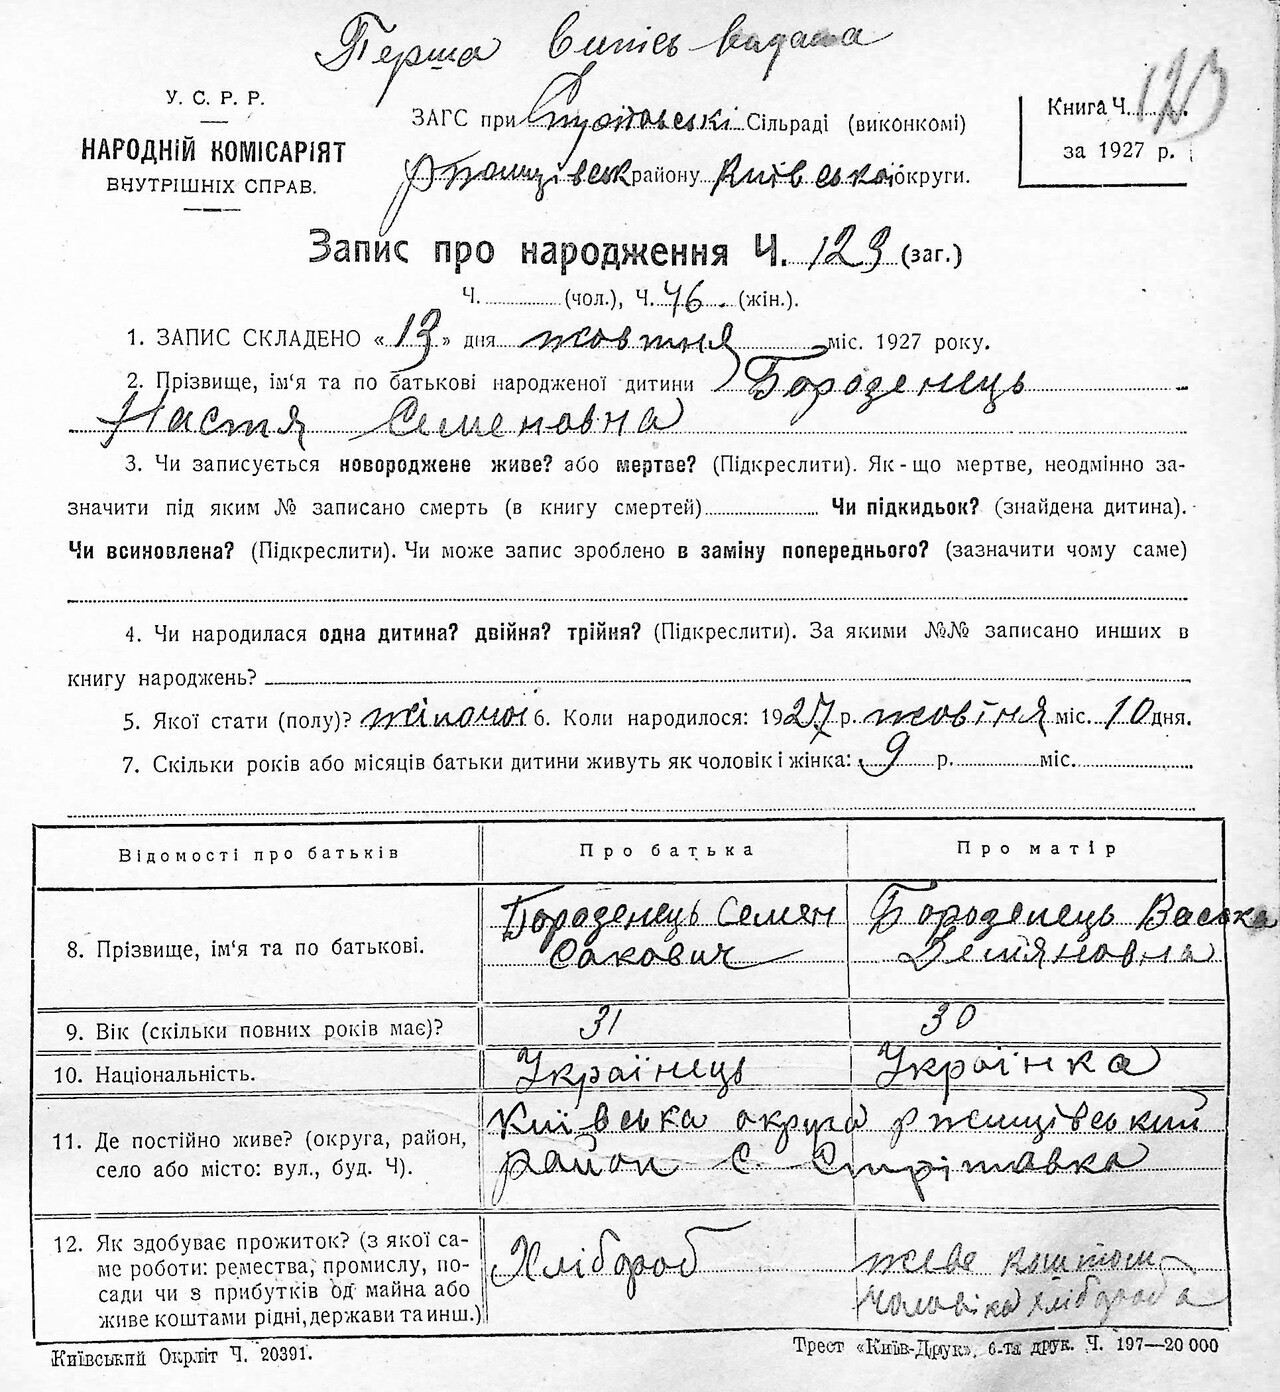 Перша випись видана
У. С. Р. Р.
НАРОДНІЙ КОМІСАРІЯТ
ВНУТРІШНІХ СПРАВ.
ЗАГС при Сільраді (виконкомі)
ржищівськ району Київської округи.
Книга Ч. 123
за 1927 р.
Запис про народження Ч. 123 (заг.)
Ч. (чол.), Ч. 46. (жін.).
1. ЗАПИС СКЛАДЕНО «13» дня жовтня міс. 1927 року.
2. Прізвище, ім'я та по батькові народженої дитини Бороденець
Настя Семеновна
3. Чи записується новороджене живе? або мертве? (Підкреслити). Як-що мертве, неодмінно за-
значити під яким № записано смерть (в книгу смертей) Чи підкидьок? (знайдена дитина).
Чи всиновлена? (Підкреслити). Чи може запис зроблено в заміну попереднього? (зазначити чому саме)
4. Чи народилася одна дитина? двійня? трійня? (Підкреслити). За якими №№ записано инших в
книгу народжень?
5. Якої стати (полу)? жіночої 6. Коли народилося: 1927 р. жовтня міс. 10 дня.
7. Скільки років або місяців батьки дитини живуть як чоловік і жінка: 9 р. міс.
Відомості про батьків Про батька Про матір
8. Прізвище, ім'я та по батькові. Бороденець Семен Сакович Бороденець Васька Демяновна
9. Вік (скільки повних років має)? 31 30
10. Національність. Українець Українка
11. Де постійно живе? (округа, район, Київська округа ржищівський
село або місто: вул., буд. Ч). район с. Стрітовка
12. Як здобуває прожиток? (з якої са-
ме роботи: ремества, промислу, по- Хлібороб живе коштом
сади чи з прибутків од майна або чоловіка хлібороба
живе коштами рідні, держави та инш.)
Київський Окрліт Ч. 20391.
Трест «Київ-Друк», 6-та друк. Ч. 197—20 000